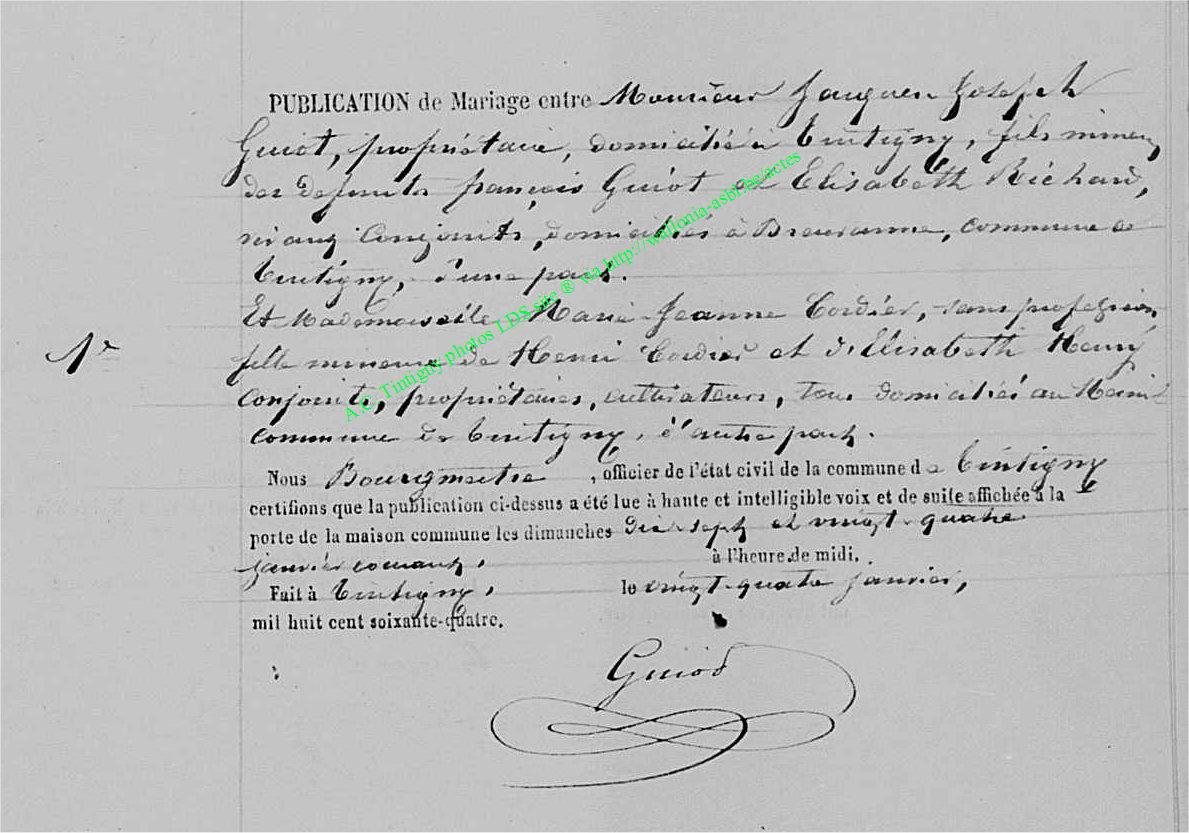 PUBLICATION de Mariage entre Monsieur Jacques Joseph
Guiot, propriétaire, domicilié à Tintigny, fils mineur
des defunts françois Guiot et Elisabeth Richard,
vivans Conjoints, domiciliés à Breuvanne, commune de
Tintigny, d'une part.
Et Mademoiselle Marie Jeanne Cordier, sans profession
fille mineure de Henri Cordier et d'Elisabeth Henry
1e
conjoints, propriétaires, cultivateurs, tous domiciliés au
commune de Tintigny, d'autre part.
Nous Bourgmestre , officier de l'état civil de la commune de Tintigny
certifions que la publication ci-dessus a été lue à haute et intelligible voix et de suite affichée à la
porte de la maison commune les dimanches dix-sept et vingt-quatre
janvier courant, à l'heure de midi.
Fait à Tintigny, le vingt-quatre janvier,
mil huit cent soixante-quatre.
Guiot
A.C. Tintigny photos LDS site ® via http://wallonia-asbl.be/actes